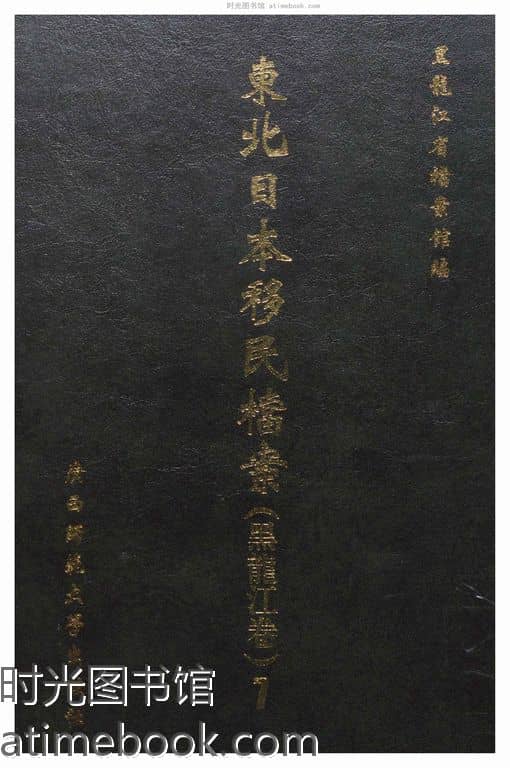 时光图书馆 atimebook.com
黑龍江省檔案館編
東北日本移民檔案(黑龍江卷)7
廣西師範大學出版社
时光图书馆
atimebook.com